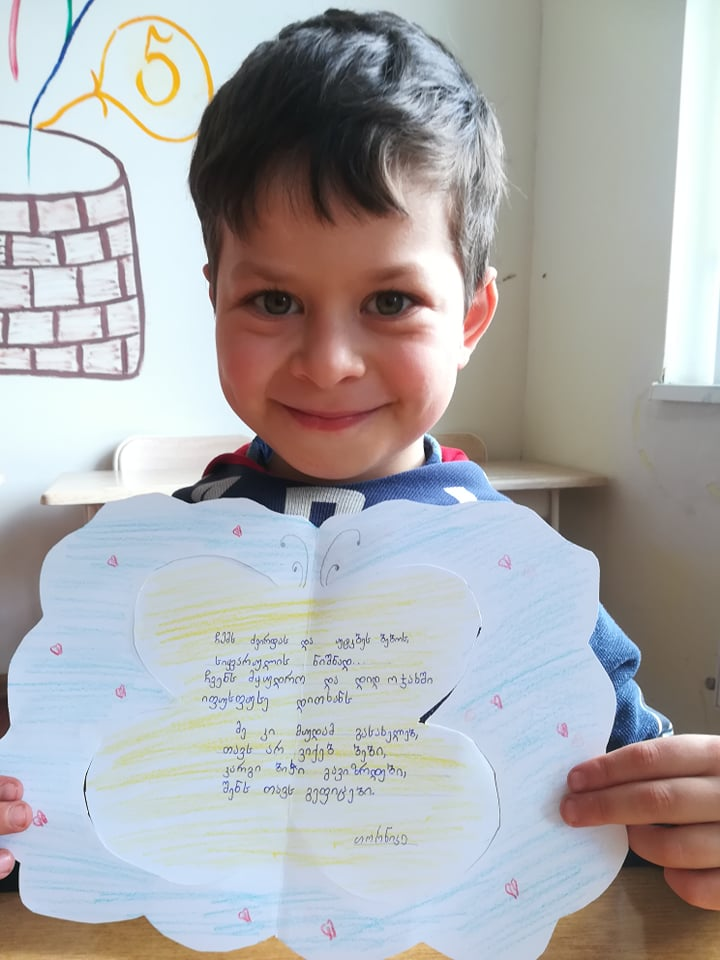 5
ჩემს ძვირფას და უტკბეს ბებოს,
სიყვარულის ნიშნად...
ჩვენს მყუდრო და დიდ ოჯახში
იფუსფუსე დიდხანს
მე კი მუდამ გასახელებ,
თავს არ ვიქებ ბებო,
კარგი ბიჭი გავიზრდები,
შენს თავს გეფიცები.
თორნიკე